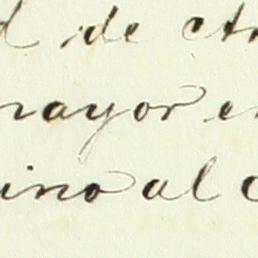 d de otr
mayor en
ino al c